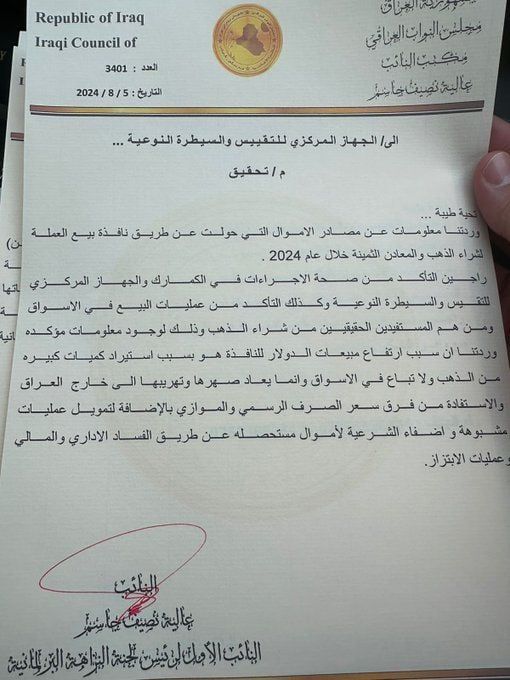 Republic of Iraq
Iraqi Council of
العدد : 3401
التاريخ : 5 / 8 / 2024
جمهورية العراق
مجلس النواب العراقي
مكتب النائب
عالية نصيف جاسم
الى/ الجهاز المركزي للتقييس والسيطرة النوعية ...
م / تحقيق
تحية طيبة ...
وردتنا معلومات عن مصادر الاموال التي حولت عن طريق نافذة بيع العملة
لشراء الذهب والمعادن الثمينة خلال عام 2024 .
راجين التأكد من صحة الاجراءات في الكمارك والجهاز المركزي
للتقيس والسيطرة النوعية وكذلك التأكد من عمليات البيع في الاسواق
ومن هم المستفيدين الحقيقيين من شراء الذهب وذلك لوجود معلومات مؤكده
وردتنا ان سبب ارتفاع مبيعات الدولار للنافذة هو بسبب استيراد كميات كبيره
من الذهب ولا تباع في الاسواق وانما يعاد صهرها وتهريبها الى خارج العراق
والاستفادة من فرق سعر الصرف الرسمي والموازي بالإضافة لتمويل عمليات
مشبوهة و اضفاء الشرعية لأموال مستحصله عن طريق الفساد الاداري والمالي
وعمليات الابتزاز.
النائب
عالية نصيف جاسم
النائب الأول لرئيس لجنة النزاهة البرلمانية